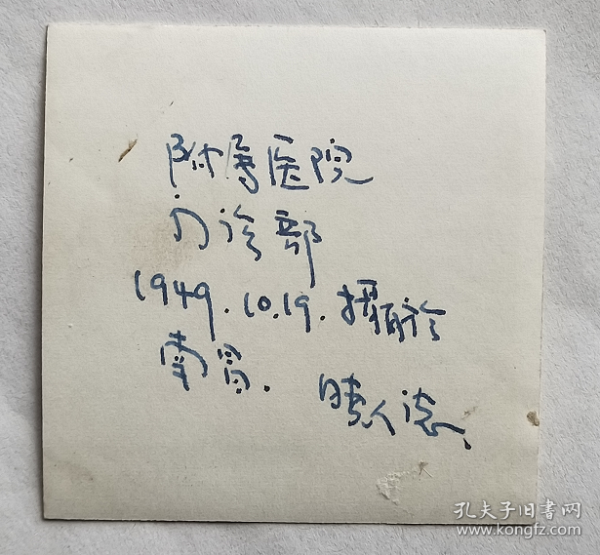 附属医院
门诊部
1949.10.19.摄於
南宫. 晓人誌
孔夫子旧書网
www.kongfz.com